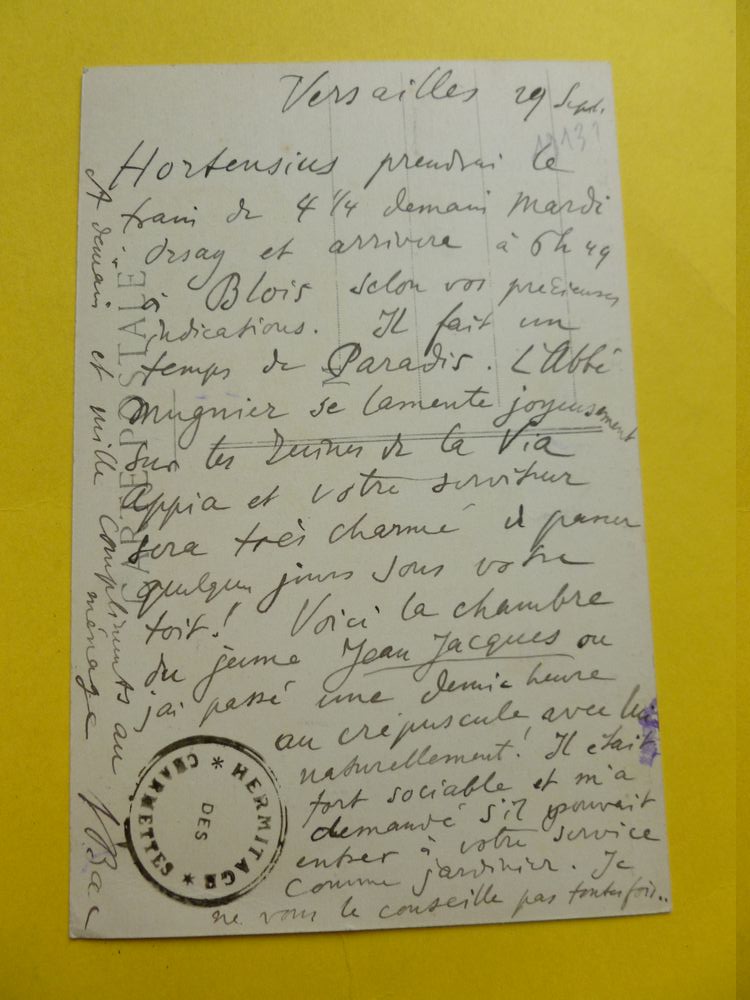 Versailles 29 Sept.
1913?
Hortensius prendrai le
train de 4 1/4 demain Mardi
Orsay et arrivera à 6h 49
à Blois selon vos précieuses
indications. Il fait un
temps de Paradis. L'Abbé
Mugnier se lamente joyeusement
sur les Ruines de la Via
Appia et votre serviteur
sera très charmé de passer
quelques jours sous votre
toit! Voici la chambre
du jeune Jean Jacques ou
j'ai passé une demie heure
au crépuscule avec lui
naturellement! Il était
fort sociable et m'a
demandé s'il pouvait
entrer à votre service
comme jardinier. Je
ne vous le conseille pas toutefois..
A demain et mille compliments au
ménage
Bac
CARTE POSTALE
* HERMITAGE * CHARMETTES
DES